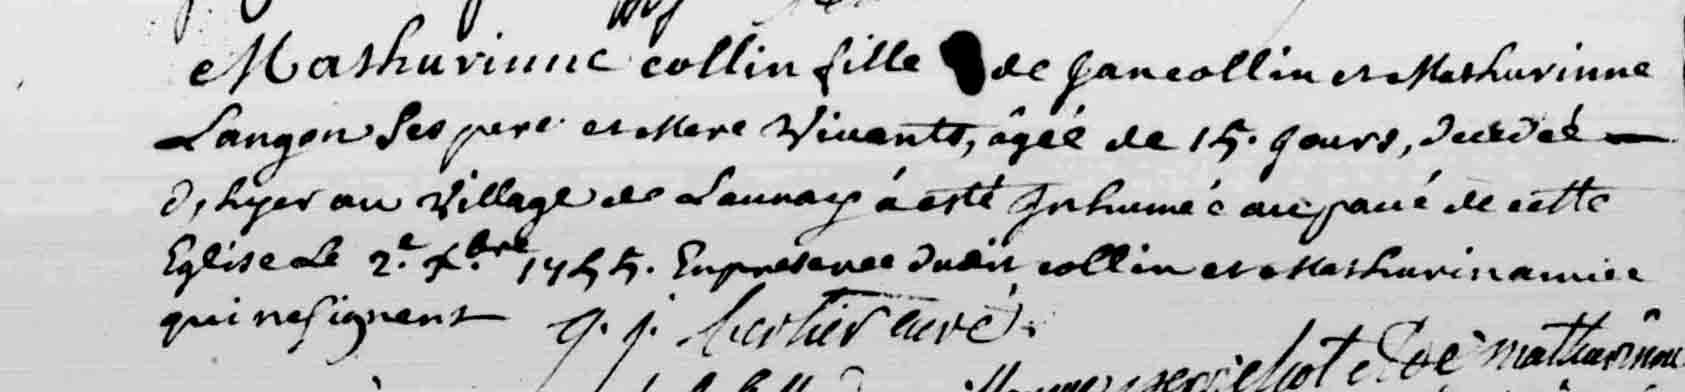 Mathurinne collin fille de Jan collin et Mathurinne
Langon Ses pere et Mere Vivants, âgéé de 15. Jours, decedéé
d'hyer au Village de Launay á esté Inhumée au pavé de cette
Eglise Le 2.e X.bre 1755. En presence dudit collin et Mathurin amice
qui ne Signent curé.
Mathurinne